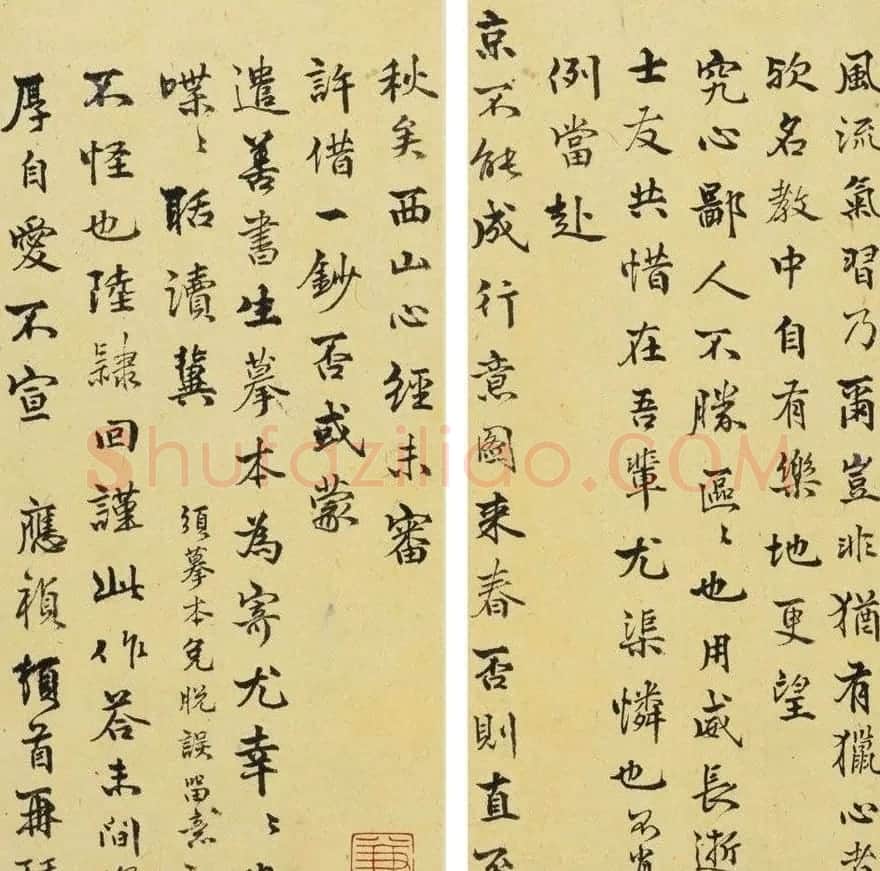 風流氣習乃爾豈非猶有獵心者
欤名教中自有樂地更望
究心鄙人不勝區〻也用威長逝
士友共惜在吾輩尤渠憐也
例當赴
京不能成行意圖来春否則直至
秋矣西山心經未審
許借一鈔否或蒙
遣善書生摹本為寄尤幸〻
喋〻聒讀冀 須摹本免脱誤留意
不怪也陸隸回謹此作荅未間
厚自愛不宣 應禎頓首再拜
Shufaziliao.COM